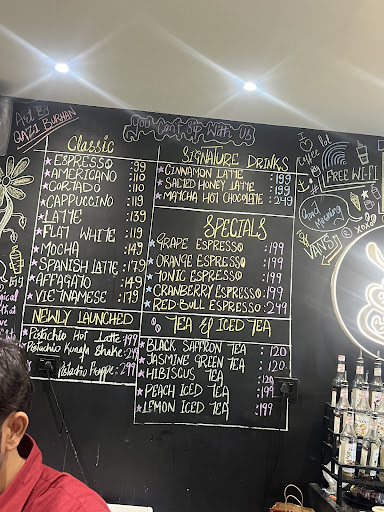 Art By
QAZI BURHAN
Classic
ESPRESSO :99
AMERICANO :110
CORTADO :110
CAPPUCCINO :119
LATTE :139
FLAT WHITE :119
MOCHA :149
SPANISH LATTE :179
AFFAGATO :149
VIETNAMESE :179
NEWLY LAUNCHED
Pistachio Hot Latte :199
Pistachio Kunafa Shake :249
Pistachio Frappe :299
SIGNATURE DRINKS
CINNAMON LATTE :199
SALTED HONEY LATTE :199
MATCHA HOT CHOCOLATE :249
SPECIALS
GRAPE ESPRESSO :199
ORANGE ESPRESSO :199
TONIC ESPRESSO :199
CRANBERRY ESPRESSO :199
RED BULL ESPRESSO :249
TEA & ICED TEA
BLACK SAFFRON TEA :120
JASMINE GREEN TEA :120
HIBISCUS TEA :120
PEACH ICED TEA :199
LEMON ICED TEA :199
FREE WI-FI
Good Morning
xoxo